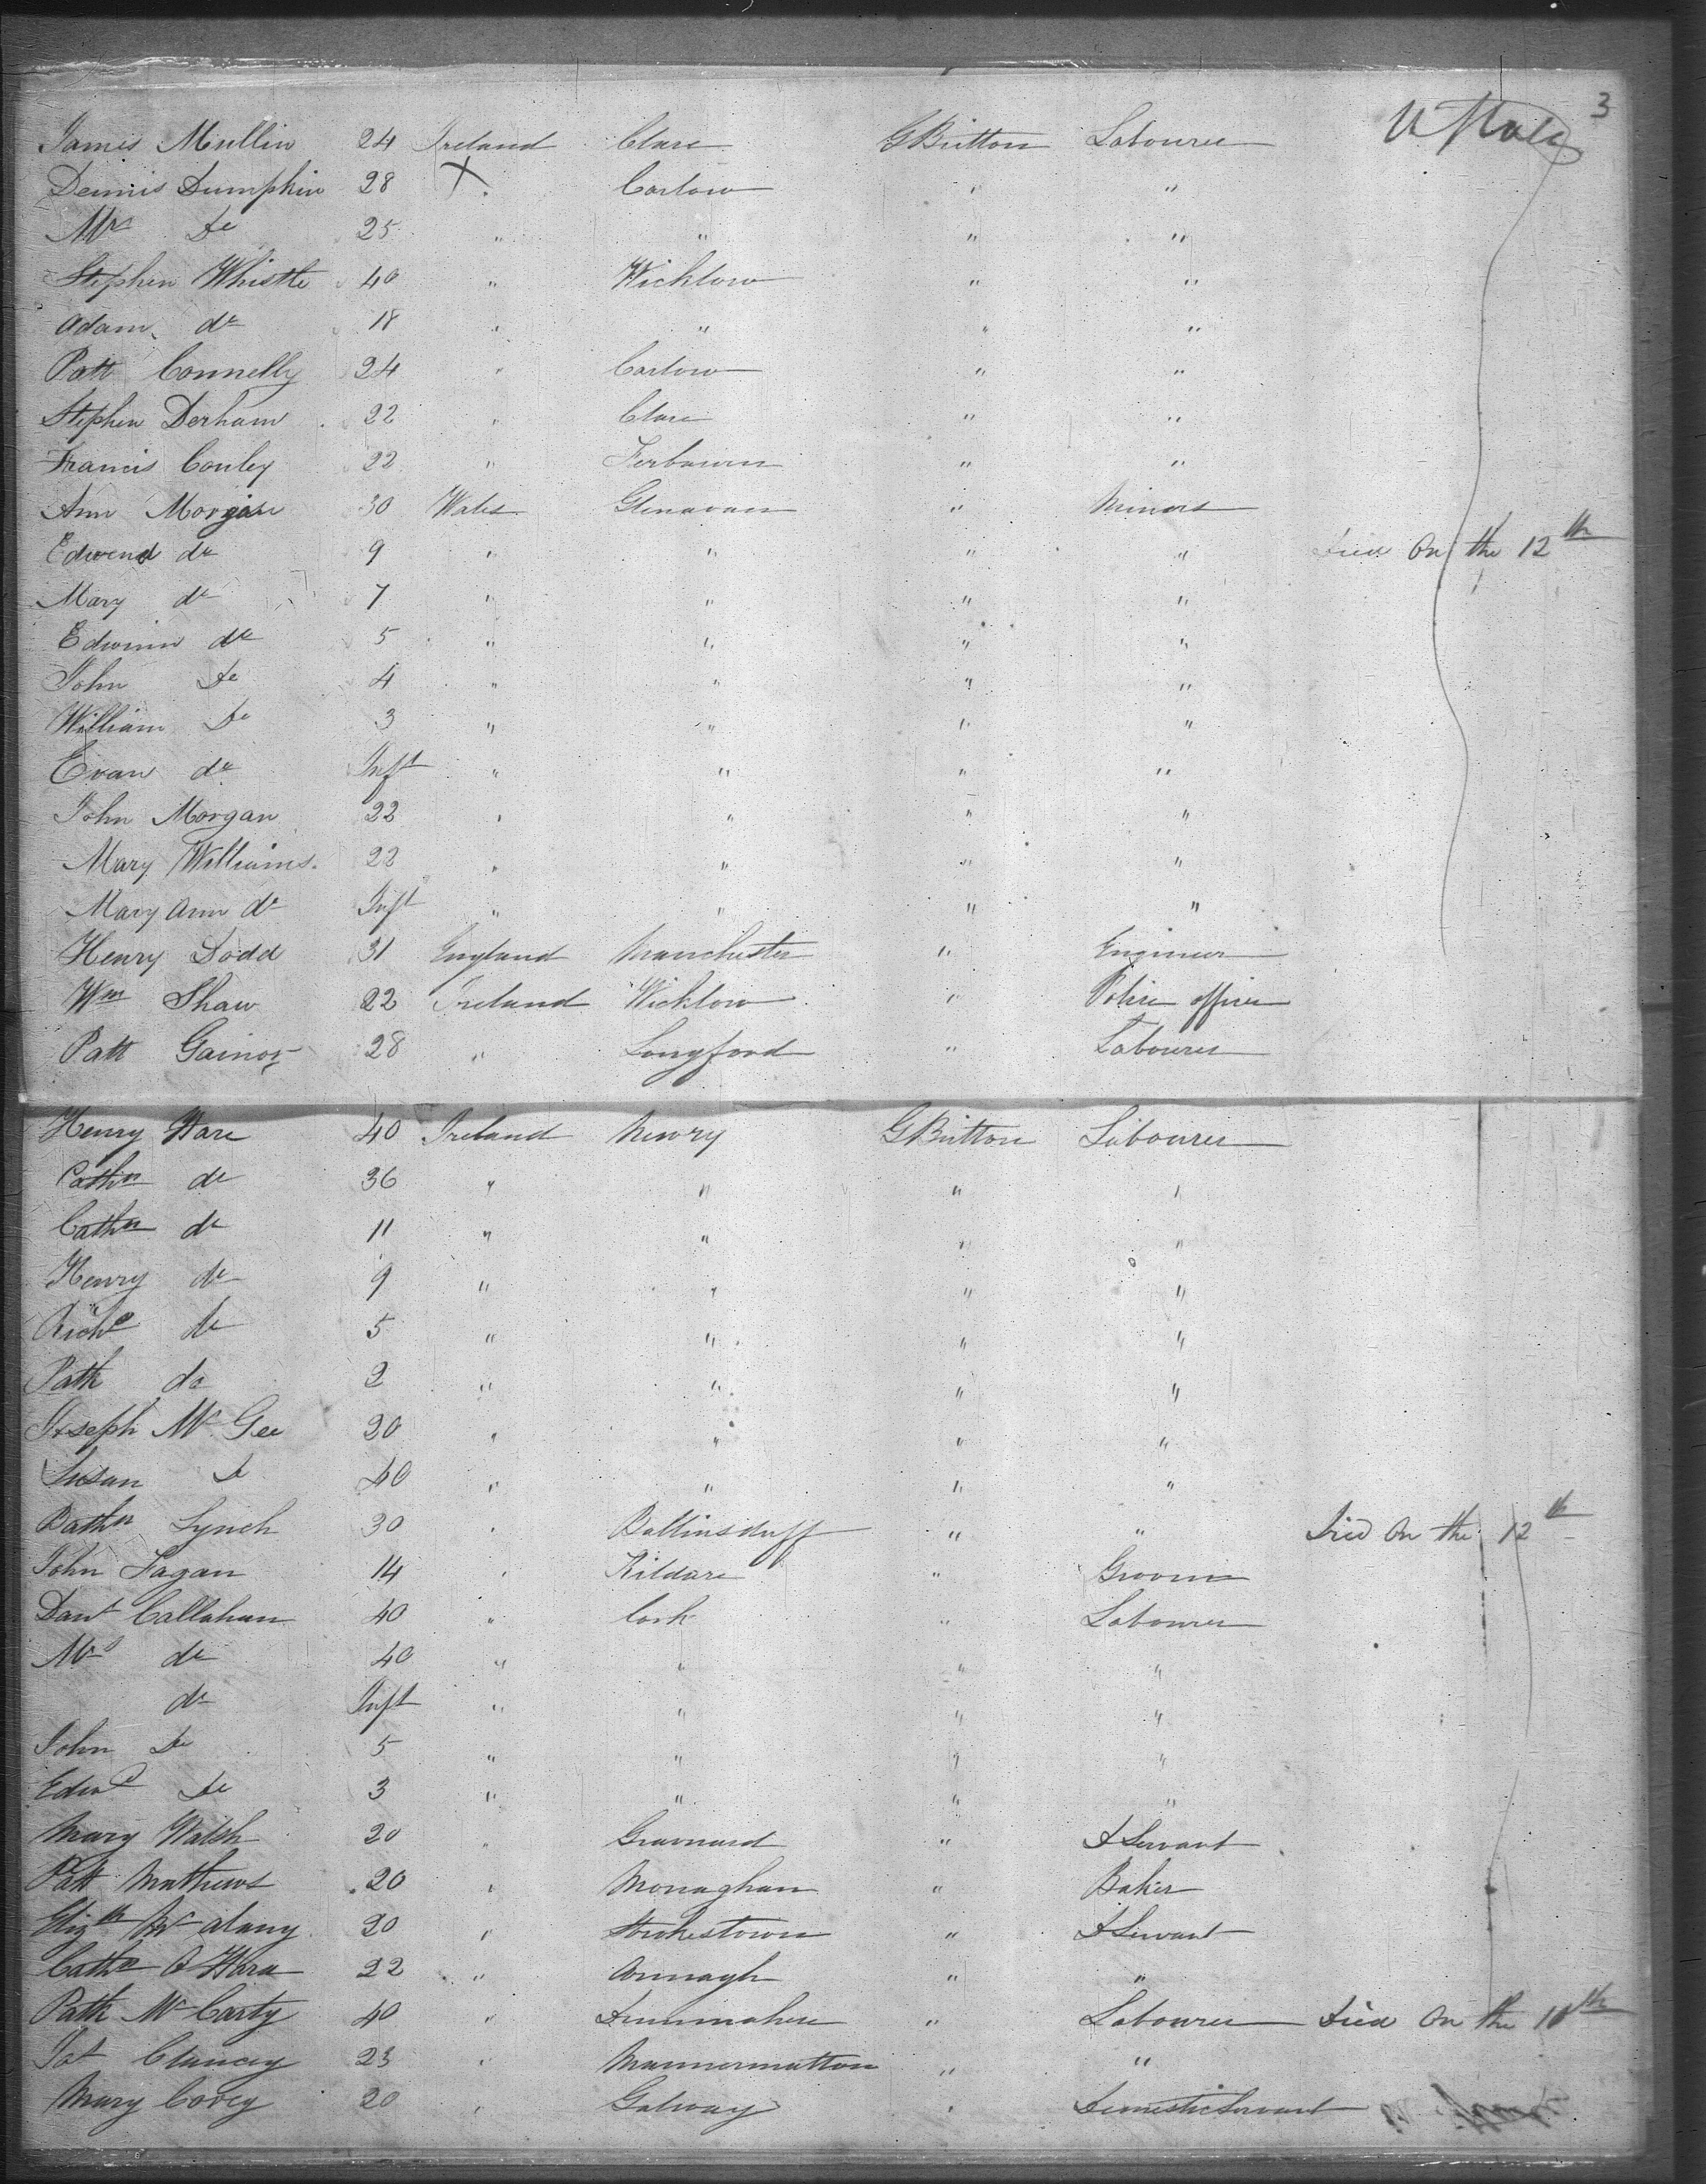 3
James Mullin 24 Ireland Clare GBritton Labourer
Dennis Dumphin 28 X Carlow " "
Mrs Do 25 " " " "
Stephen Whistle 40 " Wicklow " "
Adam do 18 " " " "
Patt Connelly 24 " Carlow " "
Stephen Derham 22 " Clare " "
Francis Conley 22 " " "
Ann Morgan 30 Wales " Minors
Edwend do 9 " " " " Died On the 12th
Mary do 7 " " " "
Edwinn do 5 " " " "
John Do 4 " " " "
William Do 3 " " " "
Evan do Inft " " " "
John Morgan 22 " " " "
Mary Williams 22 " " " "
Mary Ann do Inft " " " "
Henry Dodd 31 England Manchester " Engineer
Wm Shaw 22 Ireland Wicklow " Police officer
Patt Gainor 28 " Longford " Labourer
Henry Hare 40 Ireland Newry GBritton Labourer
Cathn do 36 " " " "
Cathn do 11 " " " "
Henry do 9 " " " "
Richd do 5 " " " "
Patk do 2 " " " "
Joseph Mc Gee 20 " " " "
Susan Do 40 " " " "
Lynch 30 " Ballinsduff " " Died On the 12th
John Fagan 14 " Kildare " Groom
Danl Callahan 40 " Cork " Labourer
Mrs do 40 " " " "
do Inft " " " "
John Do 5 " " " "
Edwd Do 3 " " " "
Mary Walsh 20 " " DServant
Patt Mathews 20 " Monaghan " Baker
Elizth Mc alany 20 " Strokestown " DServant
Cathn O Hara 22 " Armagh " "
Patk Mc Carty 40 " " Labourer Died On the 10th
Pat Clancey 23 " " "
Mary Covey 20 " Galway " Domestic Servant